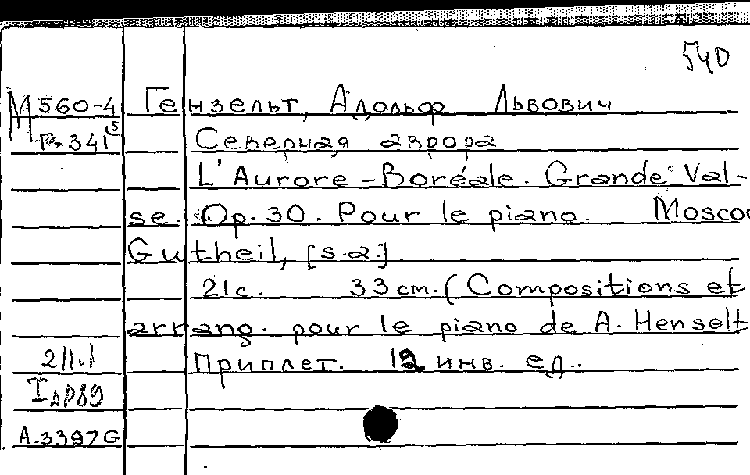 540
М 560-4 Гензельт, Адольф Львович
Северная аврора
L'Aurore-Boréale. Grande Val-
se. Op. 30. Pour le piano. Moscou
Gutheil, [s.a.]
21 c. 33 cm. (Compositions et
arrang. pour le piano de A. Henselt
Приплет. 12 инв. ед.
A-3397G